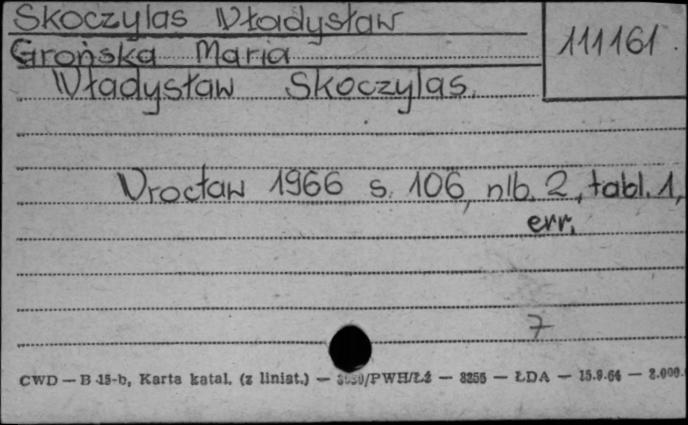 Skoczylas Władysław
111161.
Grońska Maria
Władysław Skoczylas.
Wrocław 1966 s. 106, nlb. 2, tabl. 1,
err.
7
CWD — B 15-b, Karta katal. (z liniat.) — /PWH/Łź — 8255 — ŁDA — 15.9.64 — 2.000.